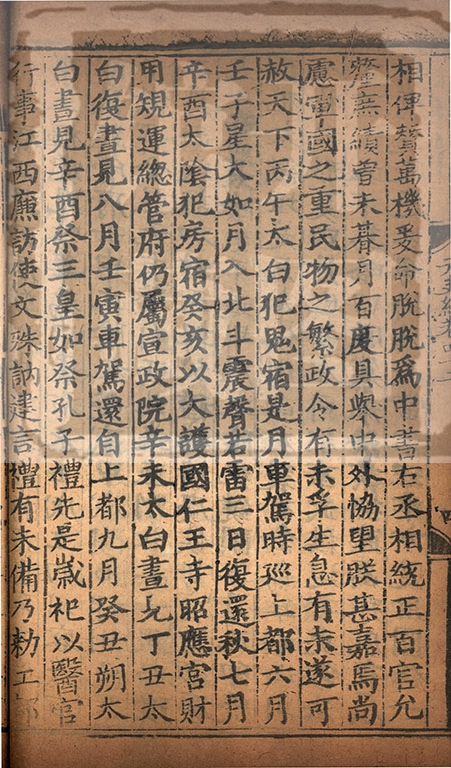 相俾贊萬機爰命脫脫爲中書右丞相統正百官允
釐庶績曾未朞月百度具舉中外協望朕甚嘉焉尚
慮軍國之重民物之繁政令有未孚生息有未遂可
赦天下丙午太白犯鬼宿是月車駕時巡上都六月
壬子星大如月入北斗震聲若雷三日復還秋七月
辛酉太陰犯房宿癸亥以大護國仁王寺昭應宮財
用規運總管府仍屬宣政院辛未太白晝見丁丑太
白復晝見八月壬寅車駕還自上都九月癸丑朔太
白晝見辛酉祭三皇如祭孔子禮先是歲祀以醫官
行事江西廉訪使文殊訥建言禮有未備乃勑工部